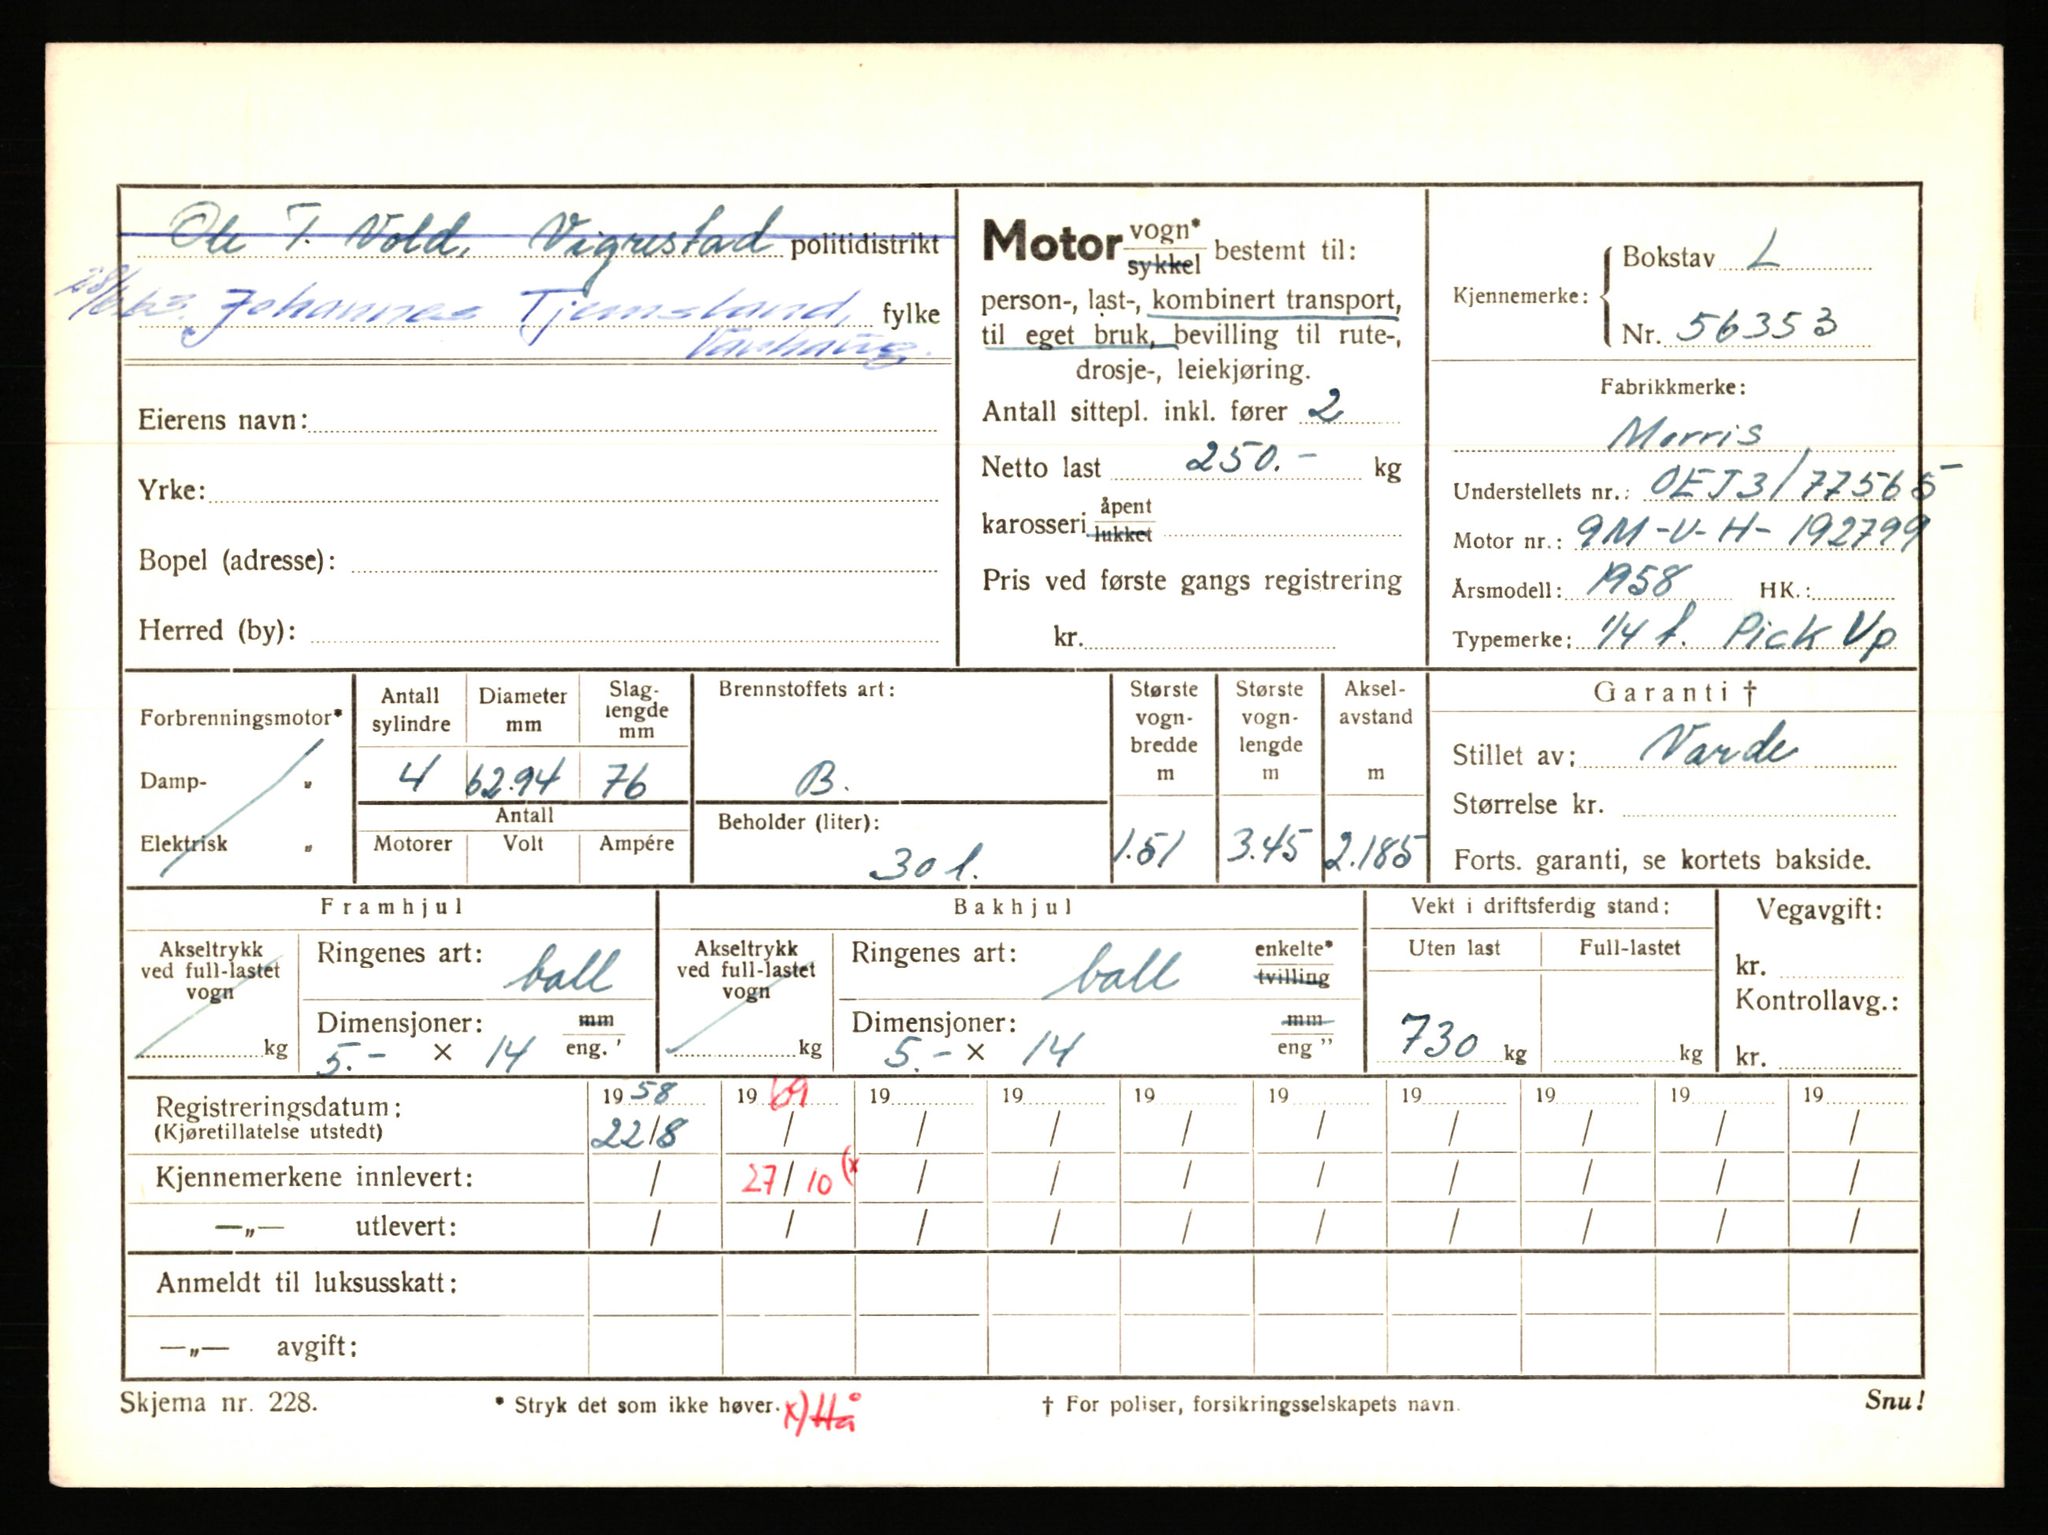 Ole T. Vold, Vigrestad politidistrikt
Johannes Tjemsland, fylke
Varhaug.
Eierens navn:
Yrke:
Bopel (adresse):
Herred (by):
Motor vogn* sykkel bestemt til:
person-, last-, kombinert transport,
til eget bruk, bevilling til rute-,
drosje-, leiekjøring.
Antall sittepl. inkl. fører 2
Netto last 250.- kg
karosseri åpent lukket
Pris ved første gangs registrering
kr.
Kjennemerke: Bokstav L
Nr. 56353
Fabrikkmerke:
Morris
Understellets nr.: OEJ3/77565
Motor nr.: 9M-V-H-192799
Årsmodell: 1958 HK.:
Typemerke: 1/4 t. Pick Up
Forbrenningsmotor*
Damp- „
Elektrisk „
Antall sylindre
4
Diameter mm
62.94
Slag-lengde mm
76
Antall
Motorer Volt Ampére
Brennstoffets art:
B.
Beholder (liter):
30 l.
Største vogn-bredde m
1.51
Største vogn-lengde m
3.45
Aksel-avstand m
2.185
Garanti †
Stillet av: Varde
Størrelse kr.
Forts. garanti, se kortets bakside.
Framhjul
Akseltrykk ved full-lastet vogn
kg
Ringenes art: ball
Dimensjoner: mm eng. '
5.- × 14
Bakhjul
Akseltrykk ved full-lastet vogn
kg
Ringenes art: ball enkelte* tvilling
Dimensjoner: mm eng ”
5.- × 14
Vekt i driftsferdig stand:
Uten last Full-lastet
730 kg kg
Vegavgift:
kr.
Kontrollavg.:
kr.
Registreringsdatum: 1958 1969 19 19 19 19 19 19 19 19
(Kjøretillatelse utstedt) 22/8 / / / / / / / / /
Kjennemerkene innlevert: / 27/10 (x / / / / / / / /
—„— utlevert: / / / / / / / / / /
Anmeldt til luksusskatt:
—„— avgift:
Skjema nr. 228. * Stryk det som ikke høver. x) Hå † For poliser, forsikringsselskapets navn. Snu!